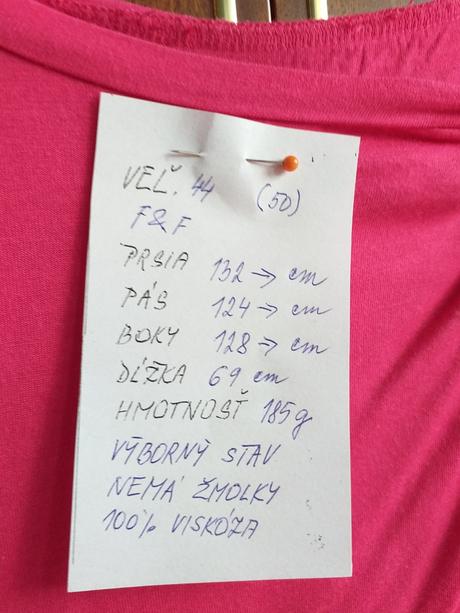 VEĽ. 44 (50)
F&F
PRSIA 132 → cm
PÁS 124 → cm
BOKY 128 → cm
DĹŽKA 69 cm
HMOTNOSŤ 185g
VÝBORNÝ STAV
NEMÁ ŽMOLKY
100% VISKÓZA